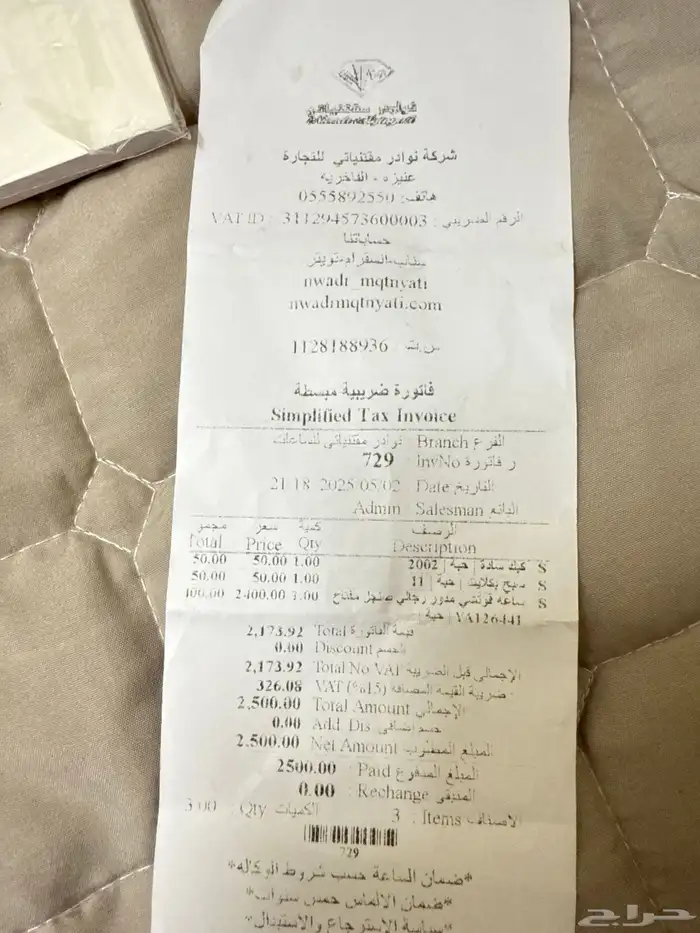 شركة نوادر مقتنياتي للتجارة
عنيزة - الفاخرية
هاتف: 0555892550
الرقم الضريبي : 311294573600003 : VAT ID
حساباتنا
سناب-انستقرام-تويتر
nwadr_mqtnyati
nwadrmqtnyati.com
س.ت 1128188936
فاتورة ضريبية مبسطة
Simplified Tax Invoice
الفرع Branch نوادر مقتنياتي للساعات
ر فاتورة InvNo 729
التاريخ Date 2025/05/02 21:18
البائع Salesman Admin
الوصف كمية سعر مجموع
Description Qty Price Total
S كبك سادة | حبة | 2002 1.00 50.00 50.00
S سبح بكلايت | حبة | 11 1.00 50.00 50.00
S ساعه قوتشي مدور رجالي صنجل مفتاح 1.00 2400.00 400.00
YA126441 | حبة |
قيمة الفاتورة Total 2,173.92
الخصم Discount 0.00
الإجمالي قبل الضريبة Total No VAT 2,173.92
ضريبة القيمه المضافه VAT (%15) 326.08
الإجمالي Total Amount 2,500.00
خصم اضافي Add Dis 0.00
المبلغ المطلوب Net Amount 2,500.00
المبلغ المدفوع Paid 2500.00
المتبقي Rechange 0.00
الاصناف Items : 3 الكميات Qty : 3.00
729
*ضمان الساعة حسب شروط الوكاله*
*ضمان الالماس خمس سنوات*
*سياسة الاسترجاع والاستبدال*
حراج